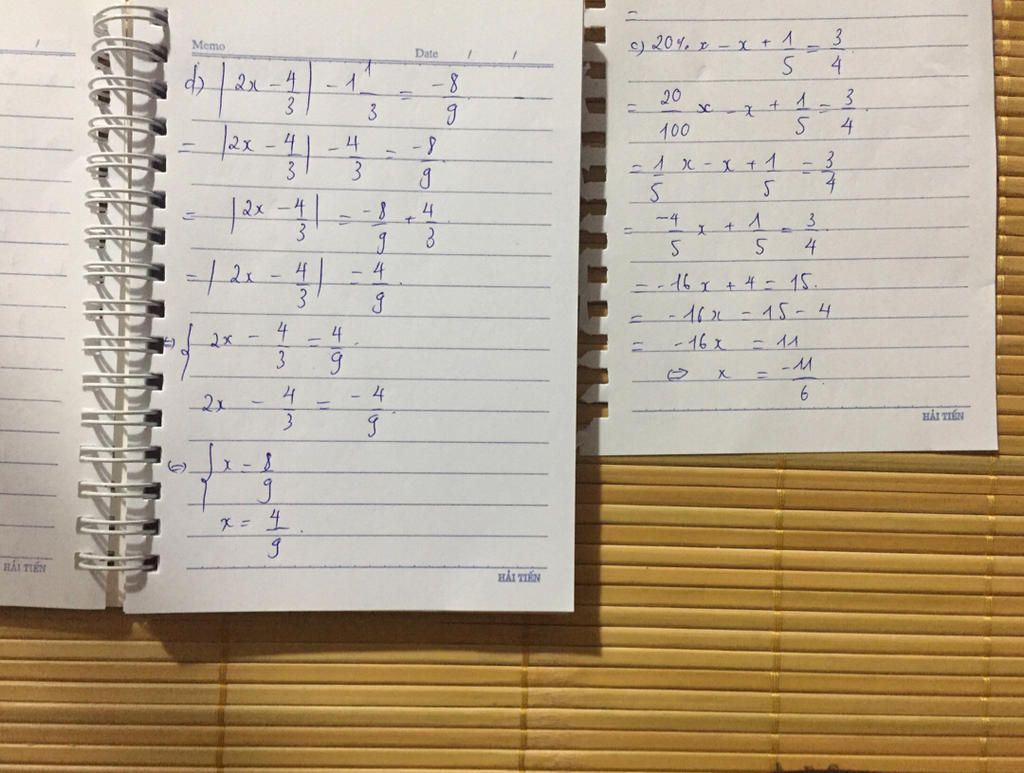 Memo Date / /
d) |2x - 4/3| - 1 1/3 = -8/9
= |2x - 4/3| - 4/3 = -8/9
= |2x - 4/3| = -8/9 + 4/3
= |2x - 4/3| = 4/9.
⇔ { 2x - 4/3 = 4/9
2x - 4/3 = -4/9
⇔ { x = 8/9
x = 4/9.
HẢI TIẾN
c) 20% x - x + 1/5 = 3/4
= 20/100 x - x + 1/5 = 3/4.
= 1/5 x - x + 1/5 = 3/4
= -4/5 x + 1/5 = 3/4.
= -16x + 4 = 15.
= -16x = 15 - 4
= -16x = 11
⇔ x = -11/6.
HẢI TIẾN
/
HẢI TIẾN